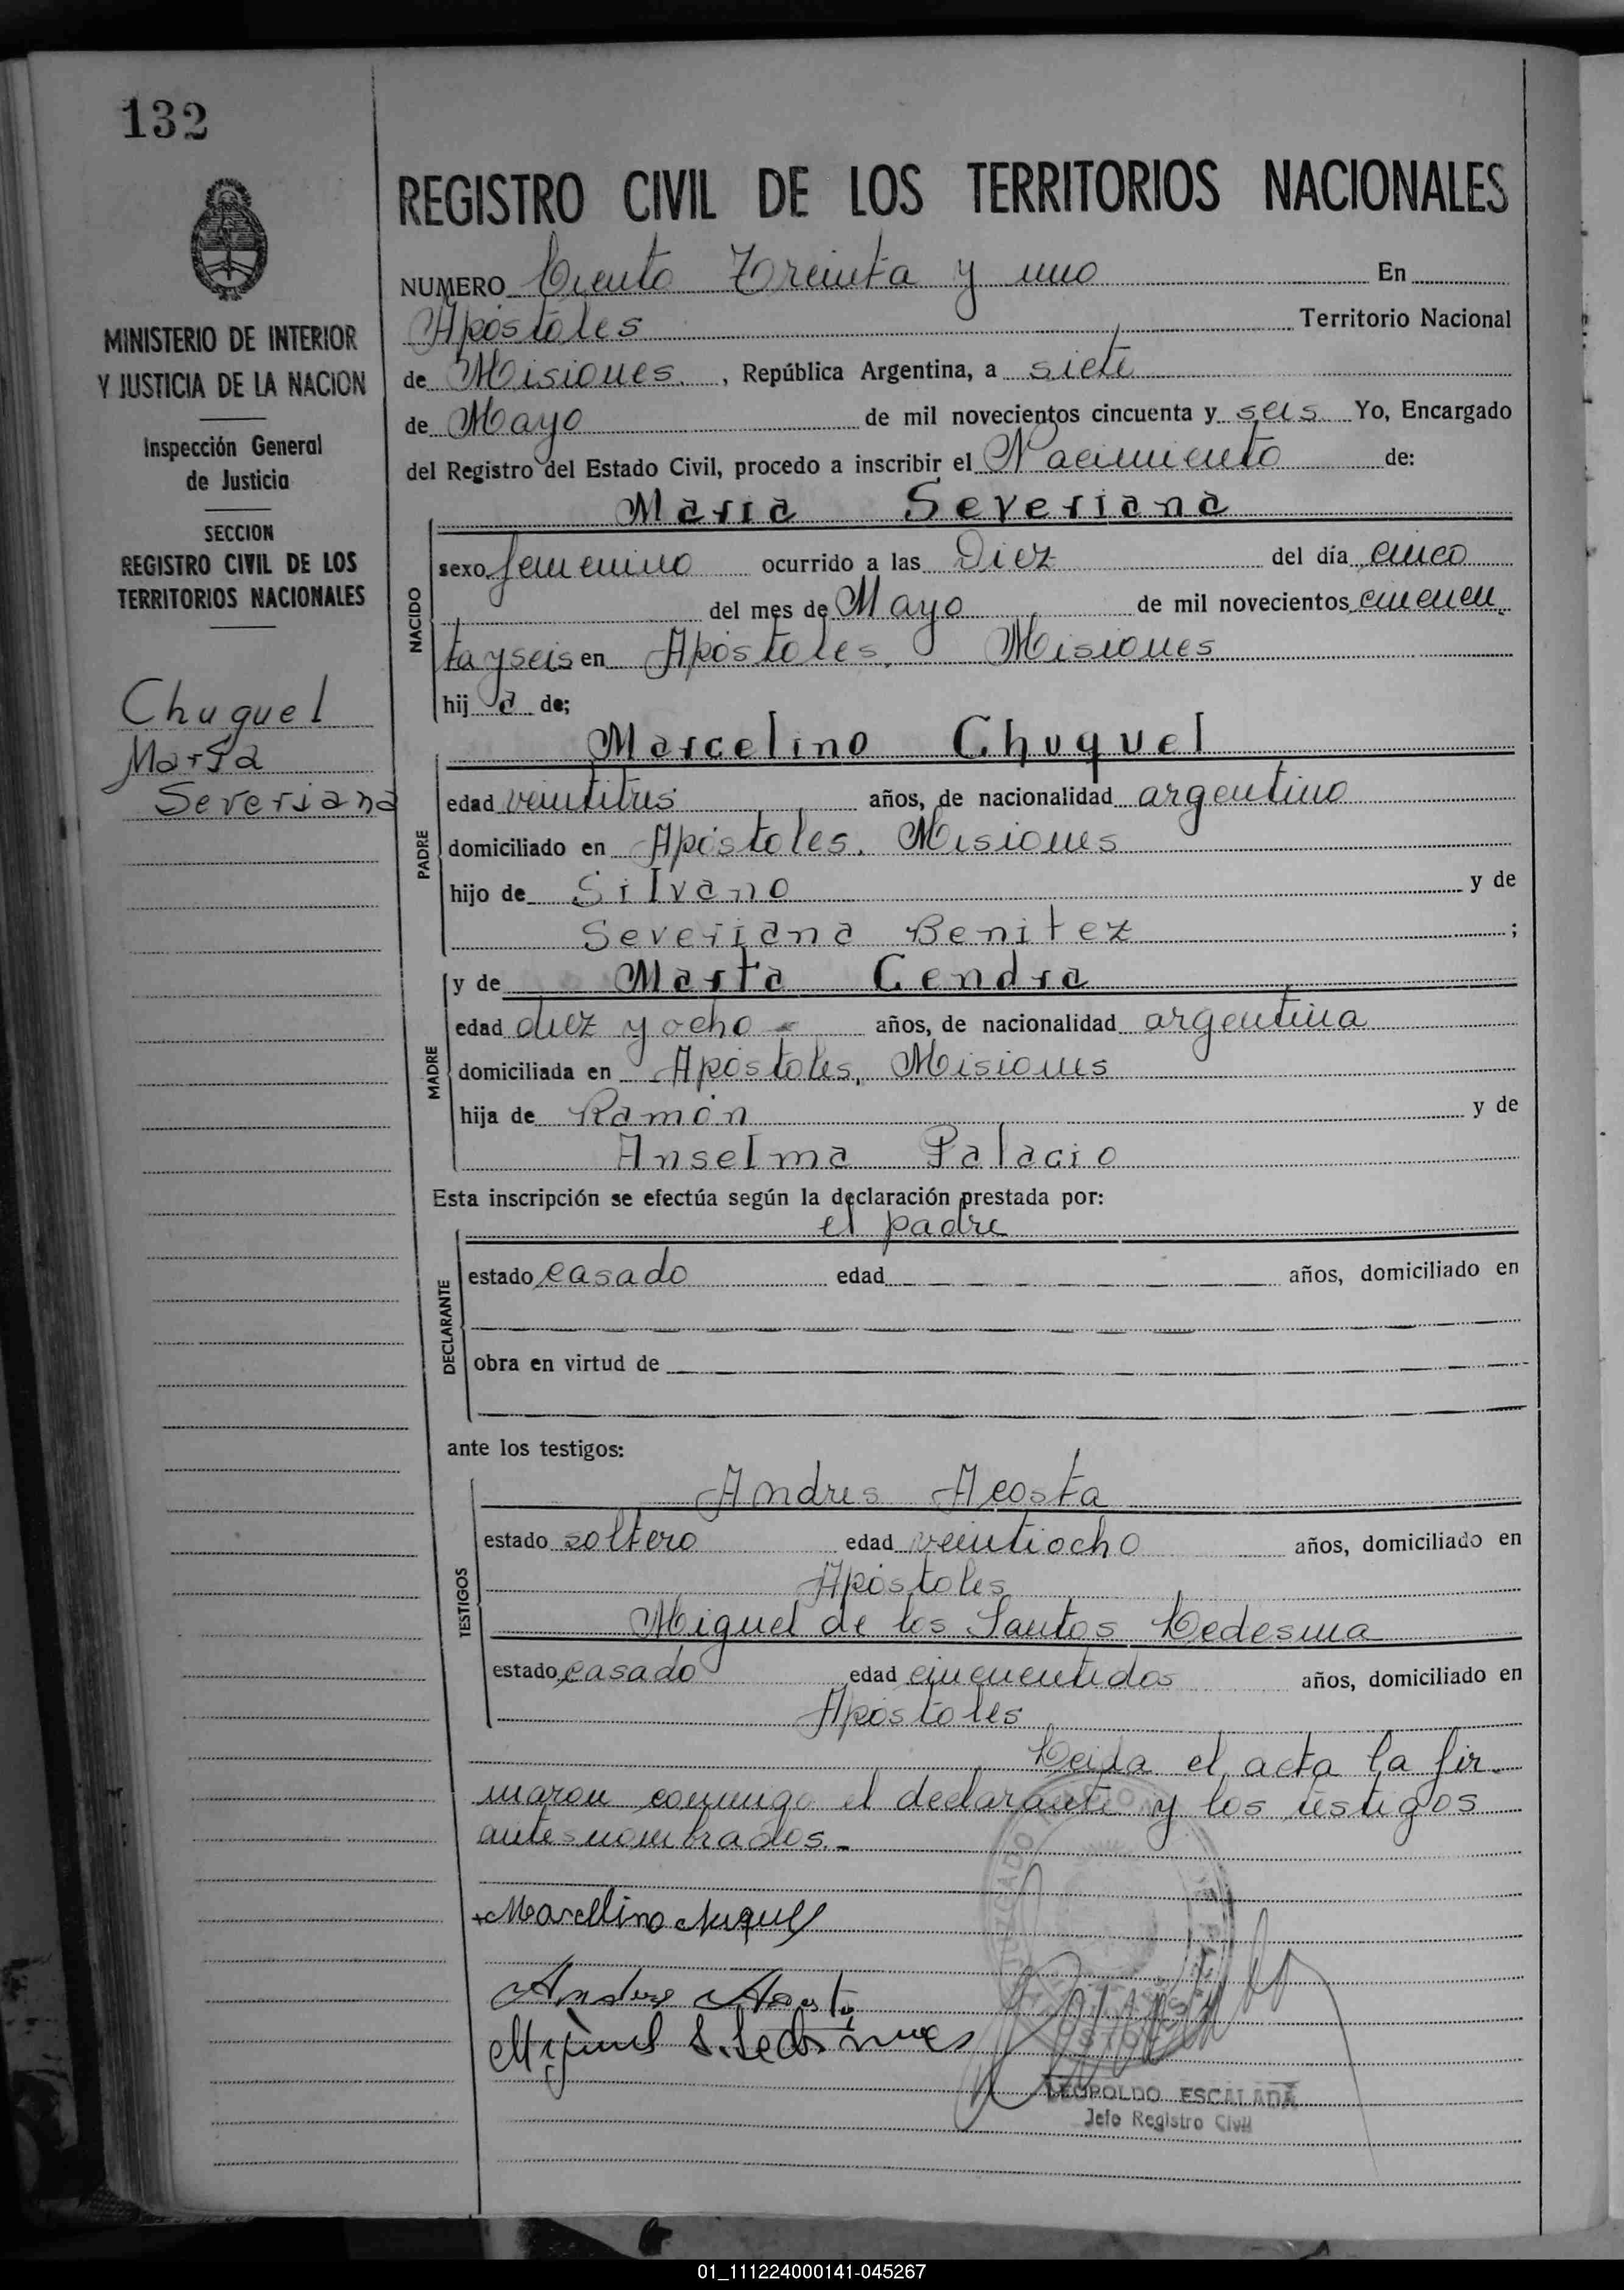 132
MINISTERIO DE INTERIOR
Y JUSTICIA DE LA NACION
Inspección General
de Justicia
SECCION
REGISTRO CIVIL DE LOS
TERRITORIOS NACIONALES
Chuquel
María
Severiana
REGISTRO CIVIL DE LOS TERRITORIOS NACIONALES
NUMERO Ciento Treinta y uno En
Apóstoles Territorio Nacional
de Misiones, República Argentina, a siete
de Mayo de mil novecientos cincuenta y seis Yo, Encargado
del Registro del Estado Civil, procedo a inscribir el Nacimiento de:
María Severiana
NACIDO
sexo femenino ocurrido a las Diez del día cinco
del mes de Mayo de mil novecientos cincuen
ta y seis en Apóstoles, Misiones
hij a de;
Marcelino Chuquel
PADRE
edad veintitres años, de nacionalidad argentino
domiciliado en Apóstoles. Misiones
hijo de Silvano y de
Severiana Benitez ;
y de Marta Cendra
MADRE
edad diez y ocho años, de nacionalidad argentina
domiciliada en Apóstoles, Misiones
hija de Ramón y de
Anselma Palacio
Esta inscripción se efectúa según la declaración prestada por:
el padre
DECLARANTE
estado casado edad años, domiciliado en
obra en virtud de
ante los testigos:
Andres Acosta
TESTIGOS
estado soltero edad veintiocho años, domiciliado en
Apóstoles
Miguel de los Santos Ledesma
estado casado edad cincuentidos años, domiciliado en
Apóstoles
Leida el acta la fir-
maron conmigo el declarante y los testigos
antes nombrados.-
Marcellino Chuquel
Andres Acosta
Miguel S. Ledesma
LEOPOLDO ESCALADA
Jefe Registro Civil
01_111224000141-045267